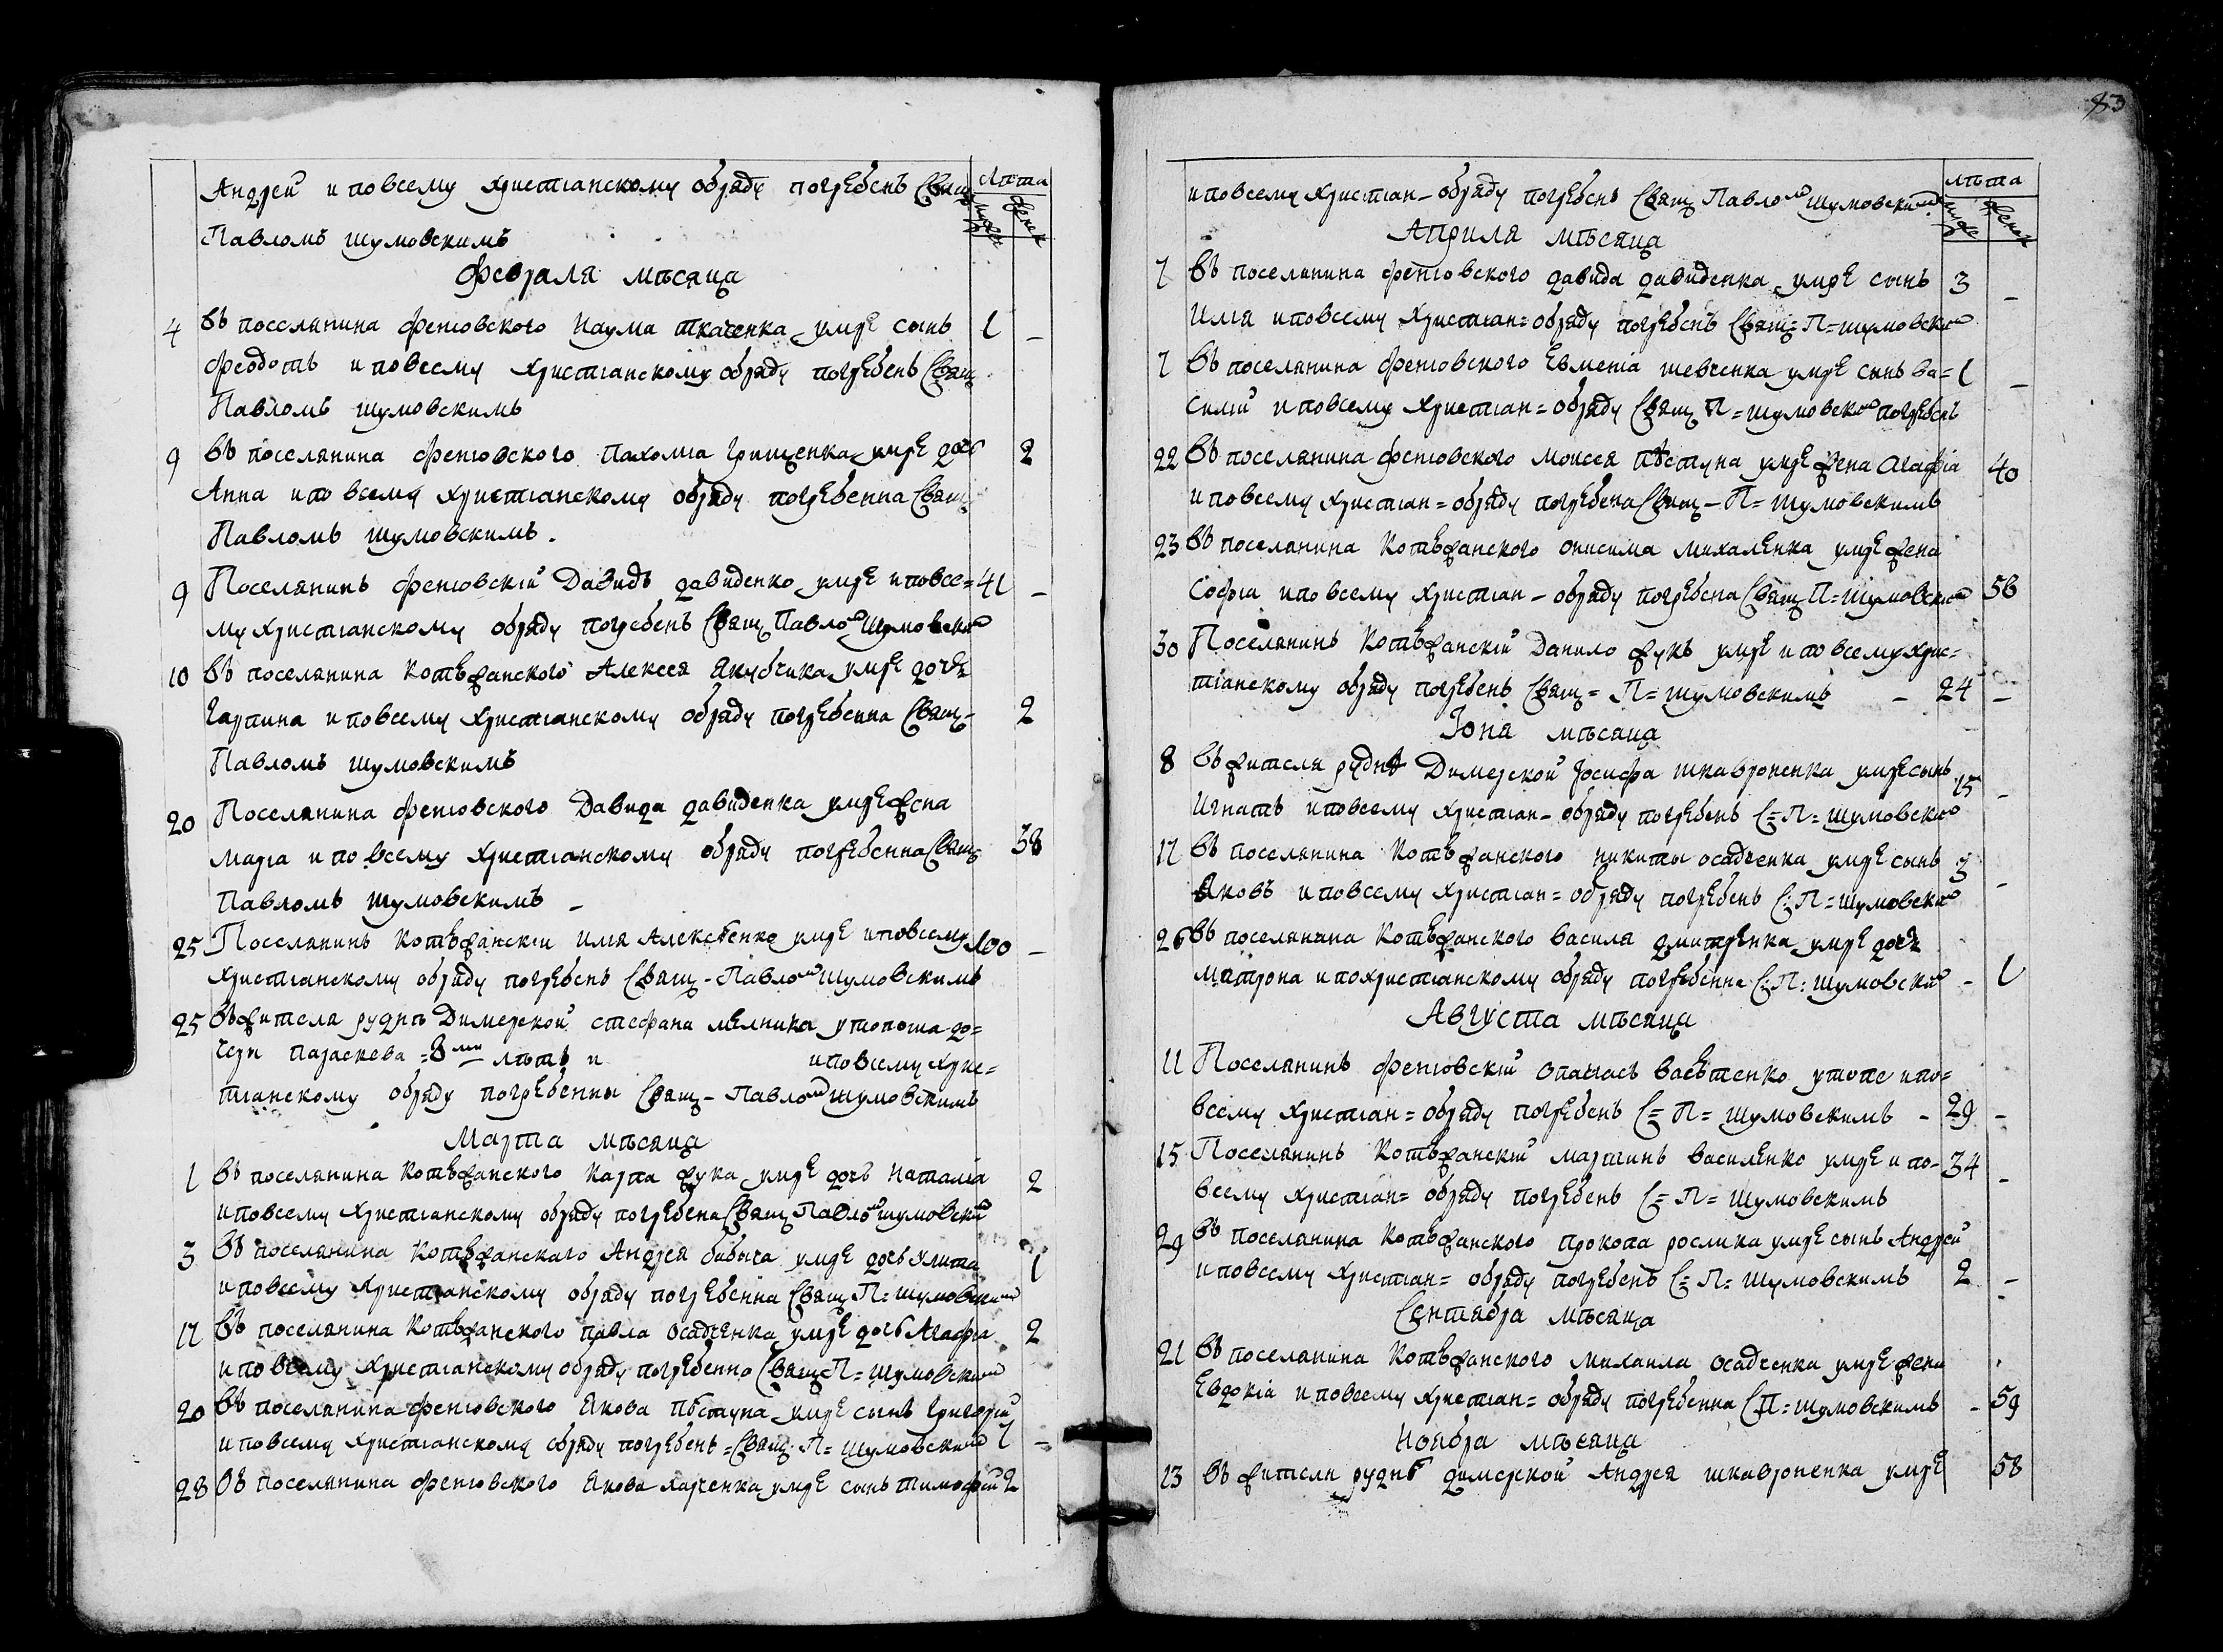 Андрей и по всему христіанскому обряду погребенъ Свящ
Лѣта
мужес женск
Павломъ Шумовскимъ
Февраля мѣсяца
4 Въ поселянина Фенювского Наума Ткаченка умре сынъ 1 –
Феодотъ и по всему христіанскому обряду погребенъ Свящ
Павломъ Шумовскимъ
9 Въ поселянина Фенювского Пахомія Грищенка умре дочь 2
Анна и по всему христіанскому обряду погребенна Свящ
Павломъ Шумовскимъ.
9 Поселянинъ Фенювскій Давидъ Давиденко умре и по все= 41 –
му христіанскому обряду погребенъ Свящ Павломъ Шумовским
10 Въ поселянина Котѣжанского Алексея Якубчика умре дочь
и по всему христіанскому обряду погребенна Свящ– 2
Павломъ Шумовскимъ
20 Поселянина Фенювского Давида Давиденка умре жена
Марія и по всему христіанскому обряду погребенна Свящ 38
Павломъ Шумовскимъ –
25 Поселянинъ Котѣжанскіи Илія Алексѣенко умре и по всему 100 –
христіанскому обряду погребенъ Свящ– Павломъ Шумовскимъ
25 В жителя руднѣ Димерской Стефана Мелника утопоша до=
чери Параскева =8ми лѣтъ и и по всему хрис=
тіанскому обряду погребенны Свящ– Павломъ Шумовскимъ
Марта мѣсяца
1 Въ поселянина Котѣжанского Карпа Жука умре дочь Наталія 2
и по всему христіанскому обряду погребена Свящ Павломъ Шумовским
3 Въ поселянина Котѣжанскаго Андрея Бабыча умре дочь Улита 1
и по всему христіанскому обряду погребенна Свящ П= Шумовским
17 Въ поселянина Котѣжанского Павла Осадченка умре дочь Агафія 2
и по всему христіанскому обряду погребенно Свящ П= Шумовским
20 Въ поселянина Фенювского Якова Пѣстуна умре сынъ Григорій
и по всему христіанскому обряду погребенъ =Свящ. П= Шумовским 1 –
28 Въ поселянина Фенювского Якова Харченка умре сынъ Тимофей 2
83
и по всему христіан– обряду погребенъ Свящ Павломъ Шумовским
лѣта
мужес женск
Априля мѣсяца
7 Въ поселянина Фенювского Давида Давиденка умре сынъ 3 –
Илія и по всему христіан= обряду погребенъ Свящ= П= Шумовским
7 Въ поселянина Фенювского Евменія Шевченка умре сынъ Ва= 1 –
силій и по всему христіан= обряду Свящ П= Шумовским погребенъ
22 Въ поселянина Фенювского Моисея Пѣстуна умре жена Агафія 40
и по всему христіан= обряду погребена Свящ– П= Шумовскимъ
23 Въ поселянина Котѣжанского Онисима Михаленка умре жена
Софія и по всему христіан– обряду погребена Свящ П= Шумовским 58
30 Поселянинъ Котѣжанскій Данило Жукъ умре и по всему хрис=
тіанскому обряду погребенъ Свящ= П= Шумовскимъ – 24 –
Іюня мѣсяца
8 Въ жителя руднѣ Димерской Іосифа Шкавроненка умре сынъ 15 –
Игнатъ и по всему христіан– обряду погребенъ С= П= Шумовским
17 Въ поселянина Котѣжанского Никиты Осадченка умре сынъ 3 –
Яковъ и по всему христіан= обряду погребенъ С: П= Шумовским
26 Въ поселянина Котѣжанского Васила Дмитренка умре дочь
Матрона и по христіанскому обряду погребенна С: П: Шумовским – 1
Августа мѣсяца
11 Поселянинъ Фенювскій Опанасъ утопе и по=
всему христіан= обряду погребенъ С= П= Шумовскимъ – 29 –
15 Поселянинъ Котѣжанскій Мартинъ Василенко умре и по– 34 –
всему христіан= обряду погребенъ С= П= Шумовскимъ
29 Въ поселянина Котѣжанского Прокопа Рослика умре сынъ Андрей
и по всему христіан= обряду погребенъ С= П= Шумовскимъ 2 –
Сентября мѣсяца
21 Въ поселянина Котѣжанского Михаила Осадченка умре жена
Евдокія и по всему христіан= обряду погребенна С П= Шумовскимъ – 59
Ноября мѣсяца
13 Въ жителя руднѣ Димерской Андрея Шкавроненка умре 58